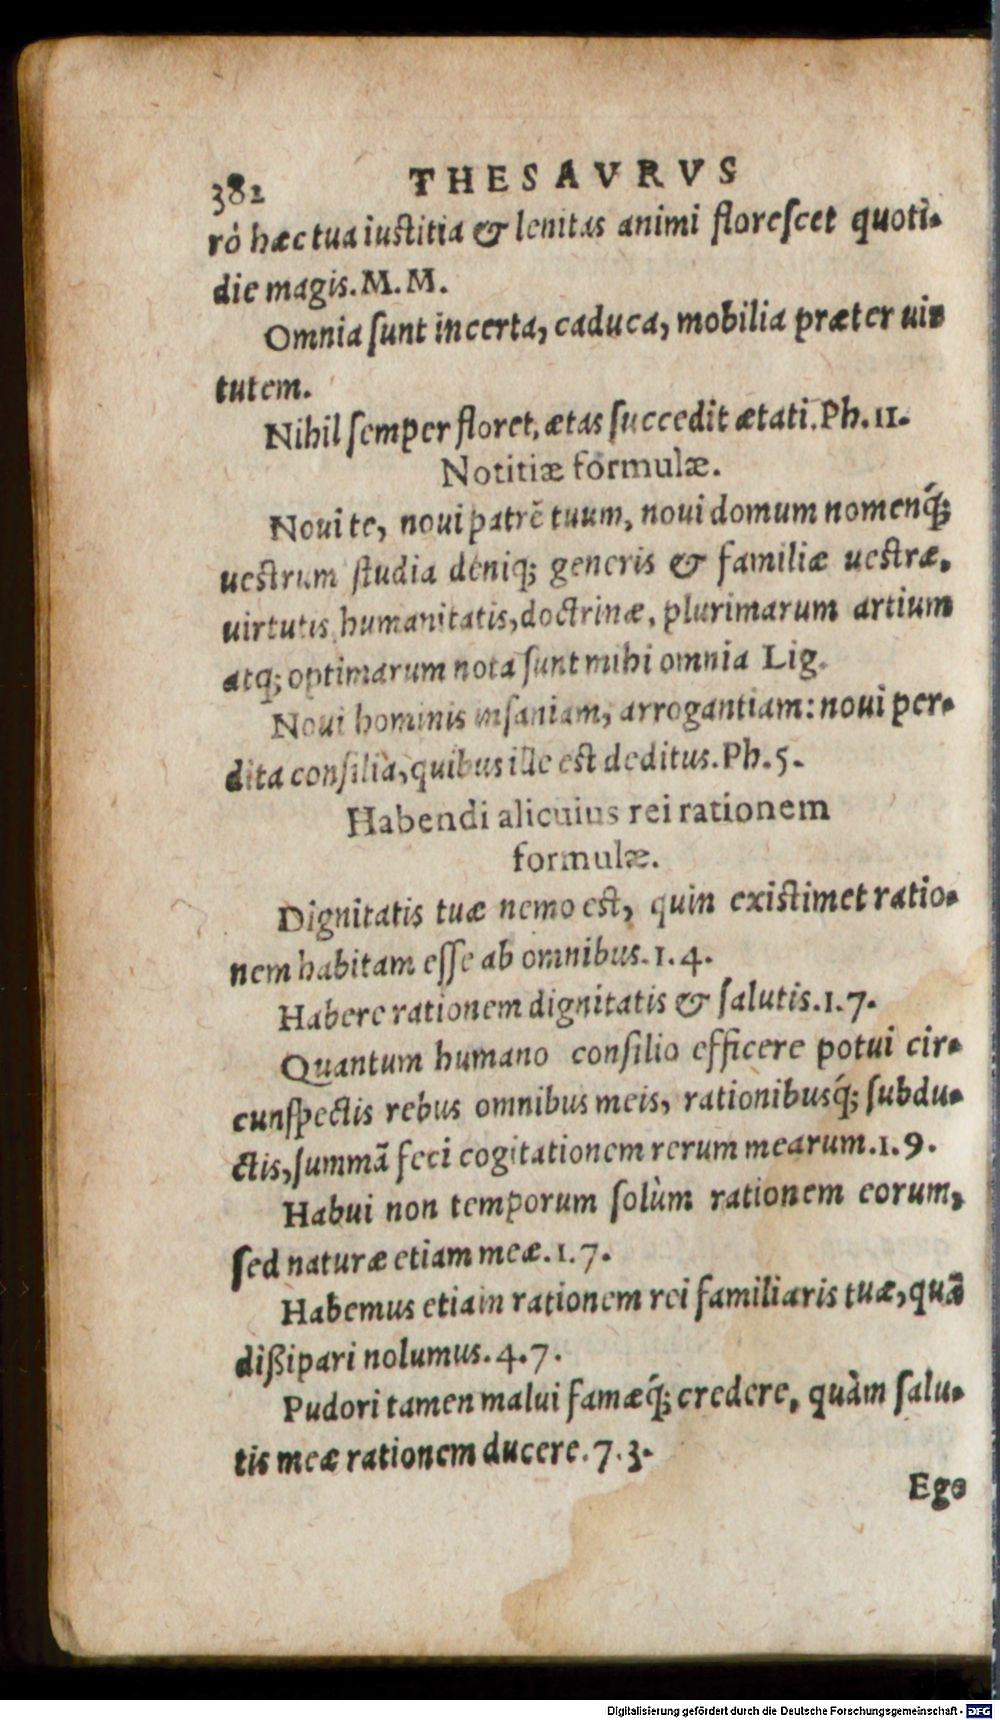 382 THESAVRVS
rò hæc tua iustitia & lenitas animi florescet quoti-
die magis. M. M.
Omnia sunt incerta, caduca, mobilia præter uir
tutem.
Nihil semper floret, ætas succedit ætati. Ph. 11.
Notitiæ formulæ.
Noui te, noui patrẽ tuum, noui domum nomenq́;
uestrum studia deniq; generis & familiæ uestræ,
uirtutis, humanitatis, doctrinæ, plurimarum artium
atq; optimarum nota sunt mihi omnia Lig.
Noui hominis insaniam, arrogantiam: noui per-
dita consilia, quibus ille est deditus. Ph. 5.
Habendi alicuius rei rationem
formulæ.
Dignitatis tuæ nemo est, quin existimet ratio-
nem habitam esse ab omnibus. 1. 4.
Habere rationem dignitatis & salutis. 1. 7.
Quantum humano consilio efficere potui cir-
cunspectis rebus omnibus meis, rationibusq́; subdu-
ctis, summã feci cogitationem rerum mearum. 1. 9.
Habui non temporum solùm rationem eorum,
sed naturæ etiam meæ. 1. 7.
Habemus etiam rationem rei familiaris tuæ, quã
dißipari nolumus. 4. 7.
Pudori tamen malui famæq́; credere, quàm salu-
tis meæ rationem ducere. 7. 3.
Ego
Digitalisierung gefördert durch die Deutsche Forschungsgemeinschaft - DFG